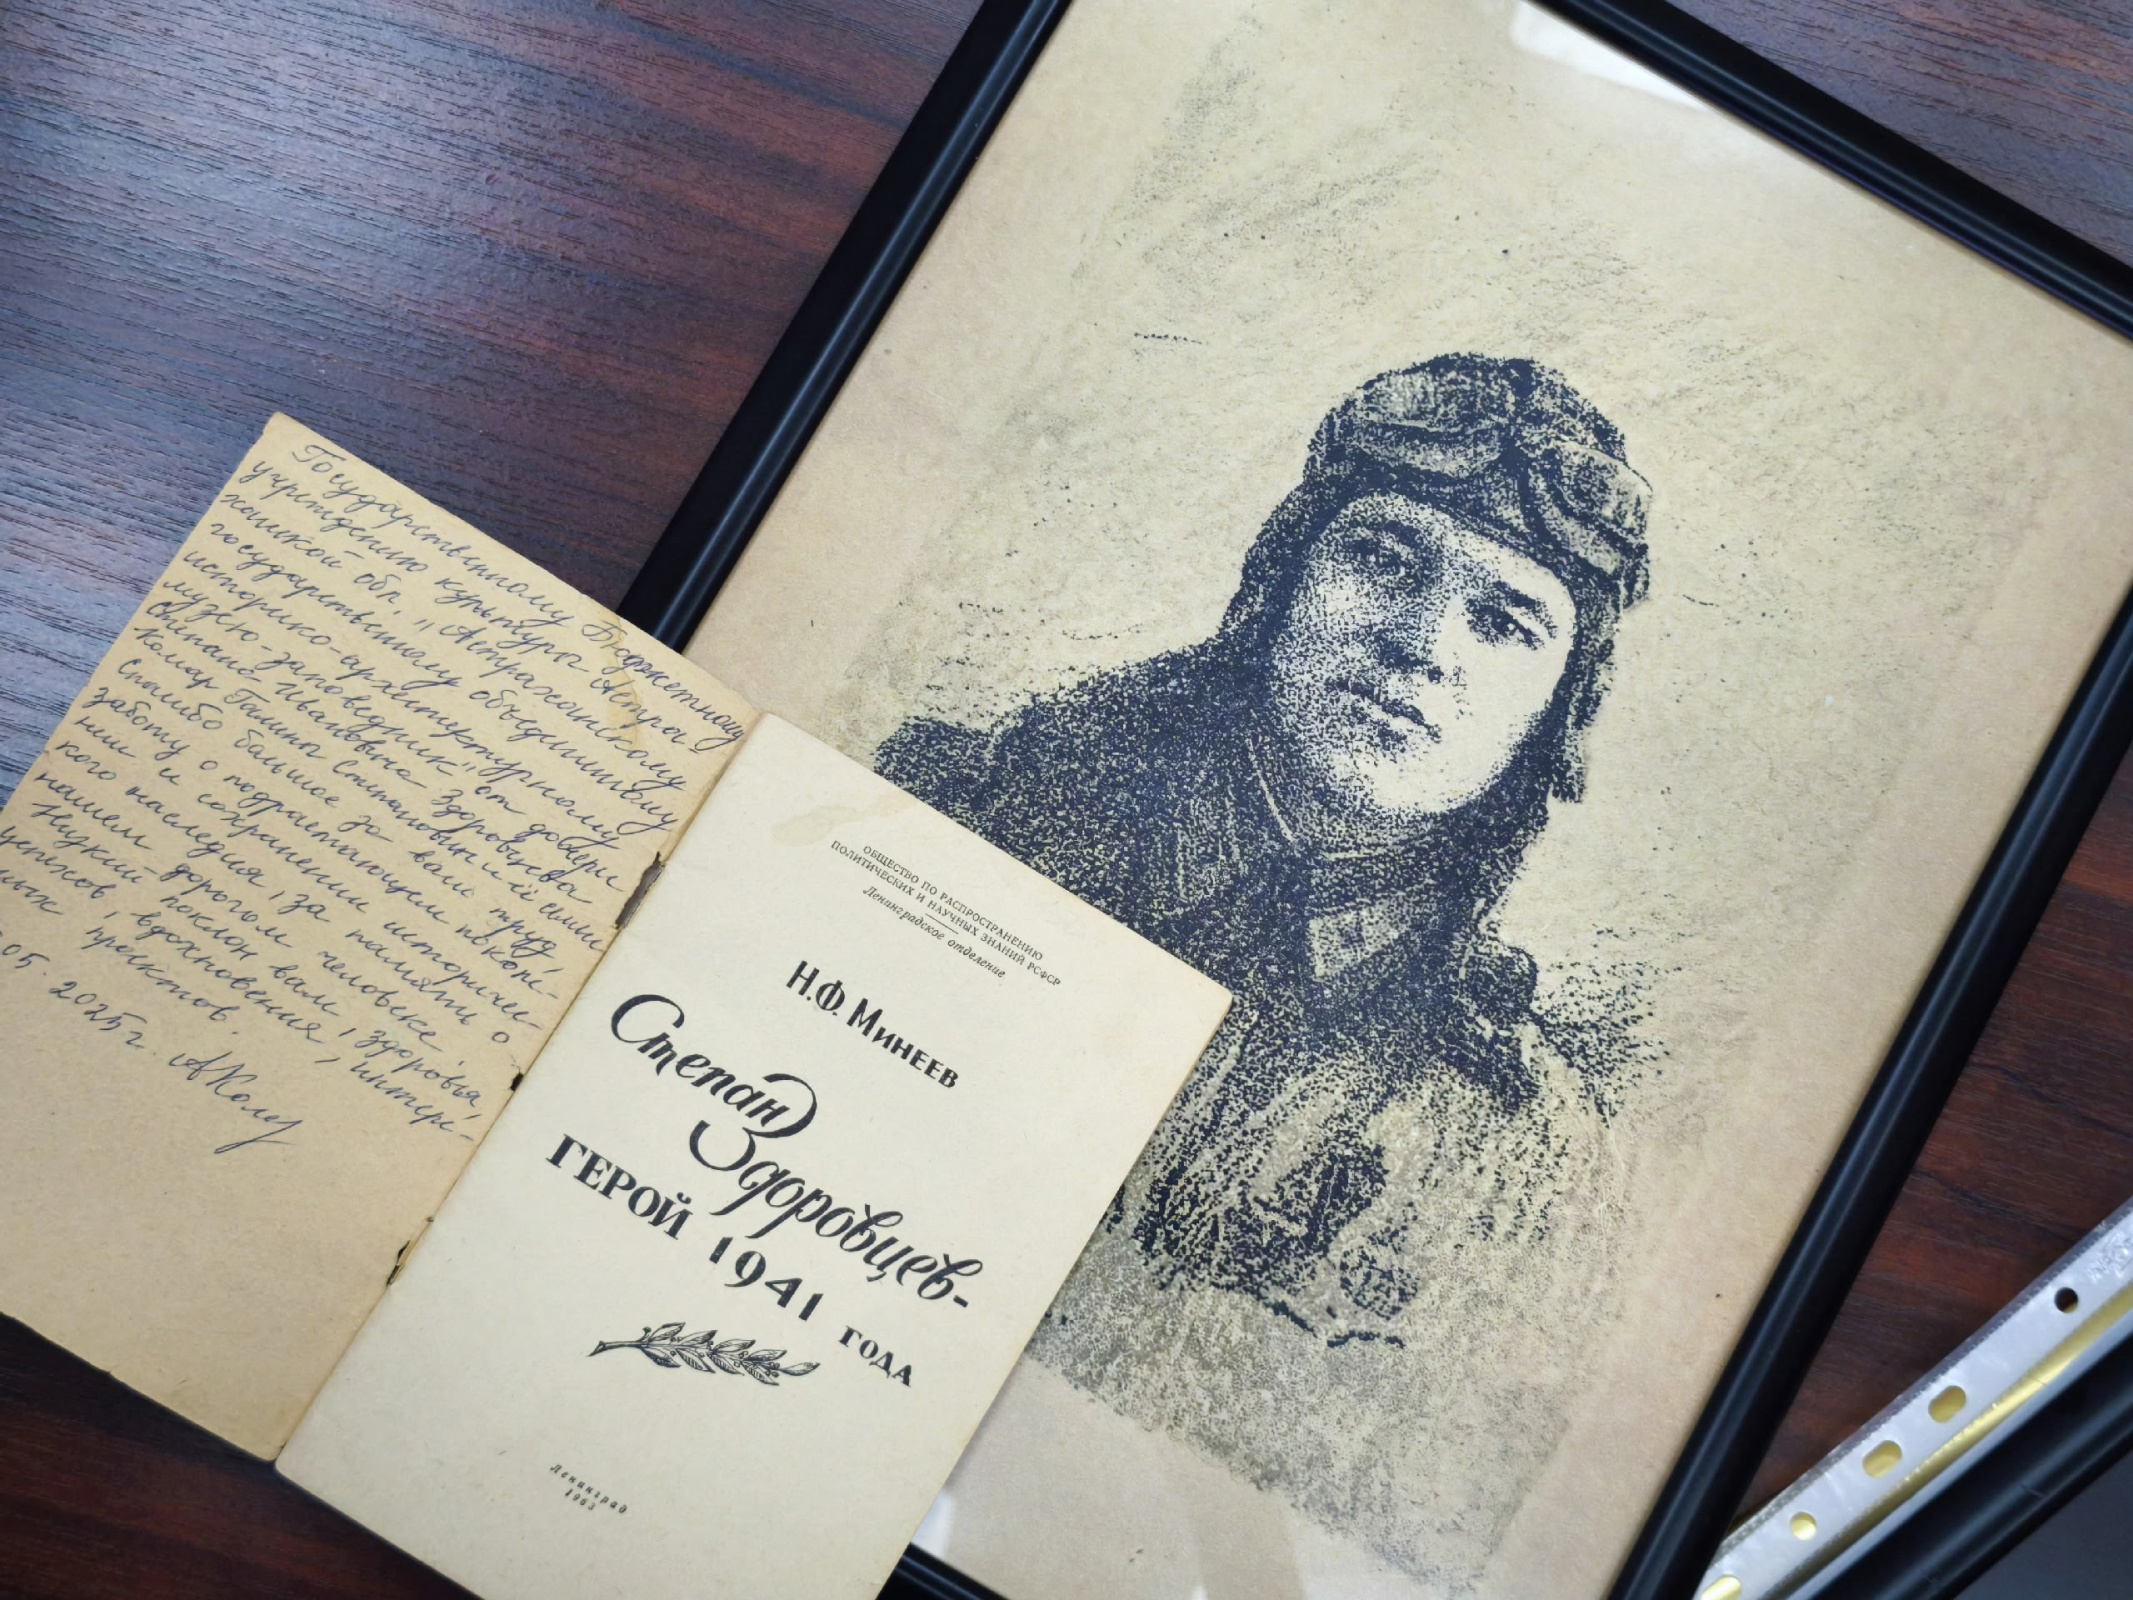 Государственному Бюджетному
учреждению культуры Астра-
ханской обл. „Астраханскому
государственному объединенному
историко-архитектурному
музею-заповеднику" от дочери
Степана Ивановича Здоровцева
Комар Галины Степановны и её семьи
Спасибо большое за ваш труд,
заботу о подрастающем поколе-
нии и сохранении историчес-
кого наследия, за память о
нашем дорогом человеке.
Низкий поклон вам, здоровья,
успехов, вдохновения, интерес-
ных проектов.
05. 2025г.
ОБЩЕСТВО ПО РАСПРОСТРАНЕНИЮ
ПОЛИТИЧЕСКИХ И НАУЧНЫХ ЗНАНИЙ РСФСР
Ленинградское отделение
Н.Ф. Минеев
Степан
Здоровцев-
ГЕРОЙ 1941 ГОДА
Ленинград
1963